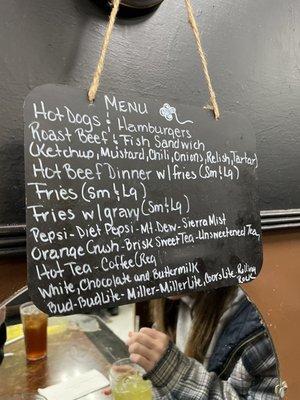 MENU
Hot Dogs & Hamburgers
Roast Beef & Fish Sandwich
(Ketchup, Mustard, Chili, Onions, Relish, Tartar)
Hot Beef Dinner w/ fries (Sm & Lg)
Fries (Sm & Lg)
Fries w/ gravy (Sm & Lg)
Pepsi - Diet Pepsi - Mt. Dew - Sierra Mist
Orange Crush - Brisk Sweet Tea - Unsweetened Tea
Hot Tea - Coffee (Reg)
White, Chocolate and Buttermilk
Bud - Bud Lite - Miller - Miller Lite, Coors Lite, Rolling Rock